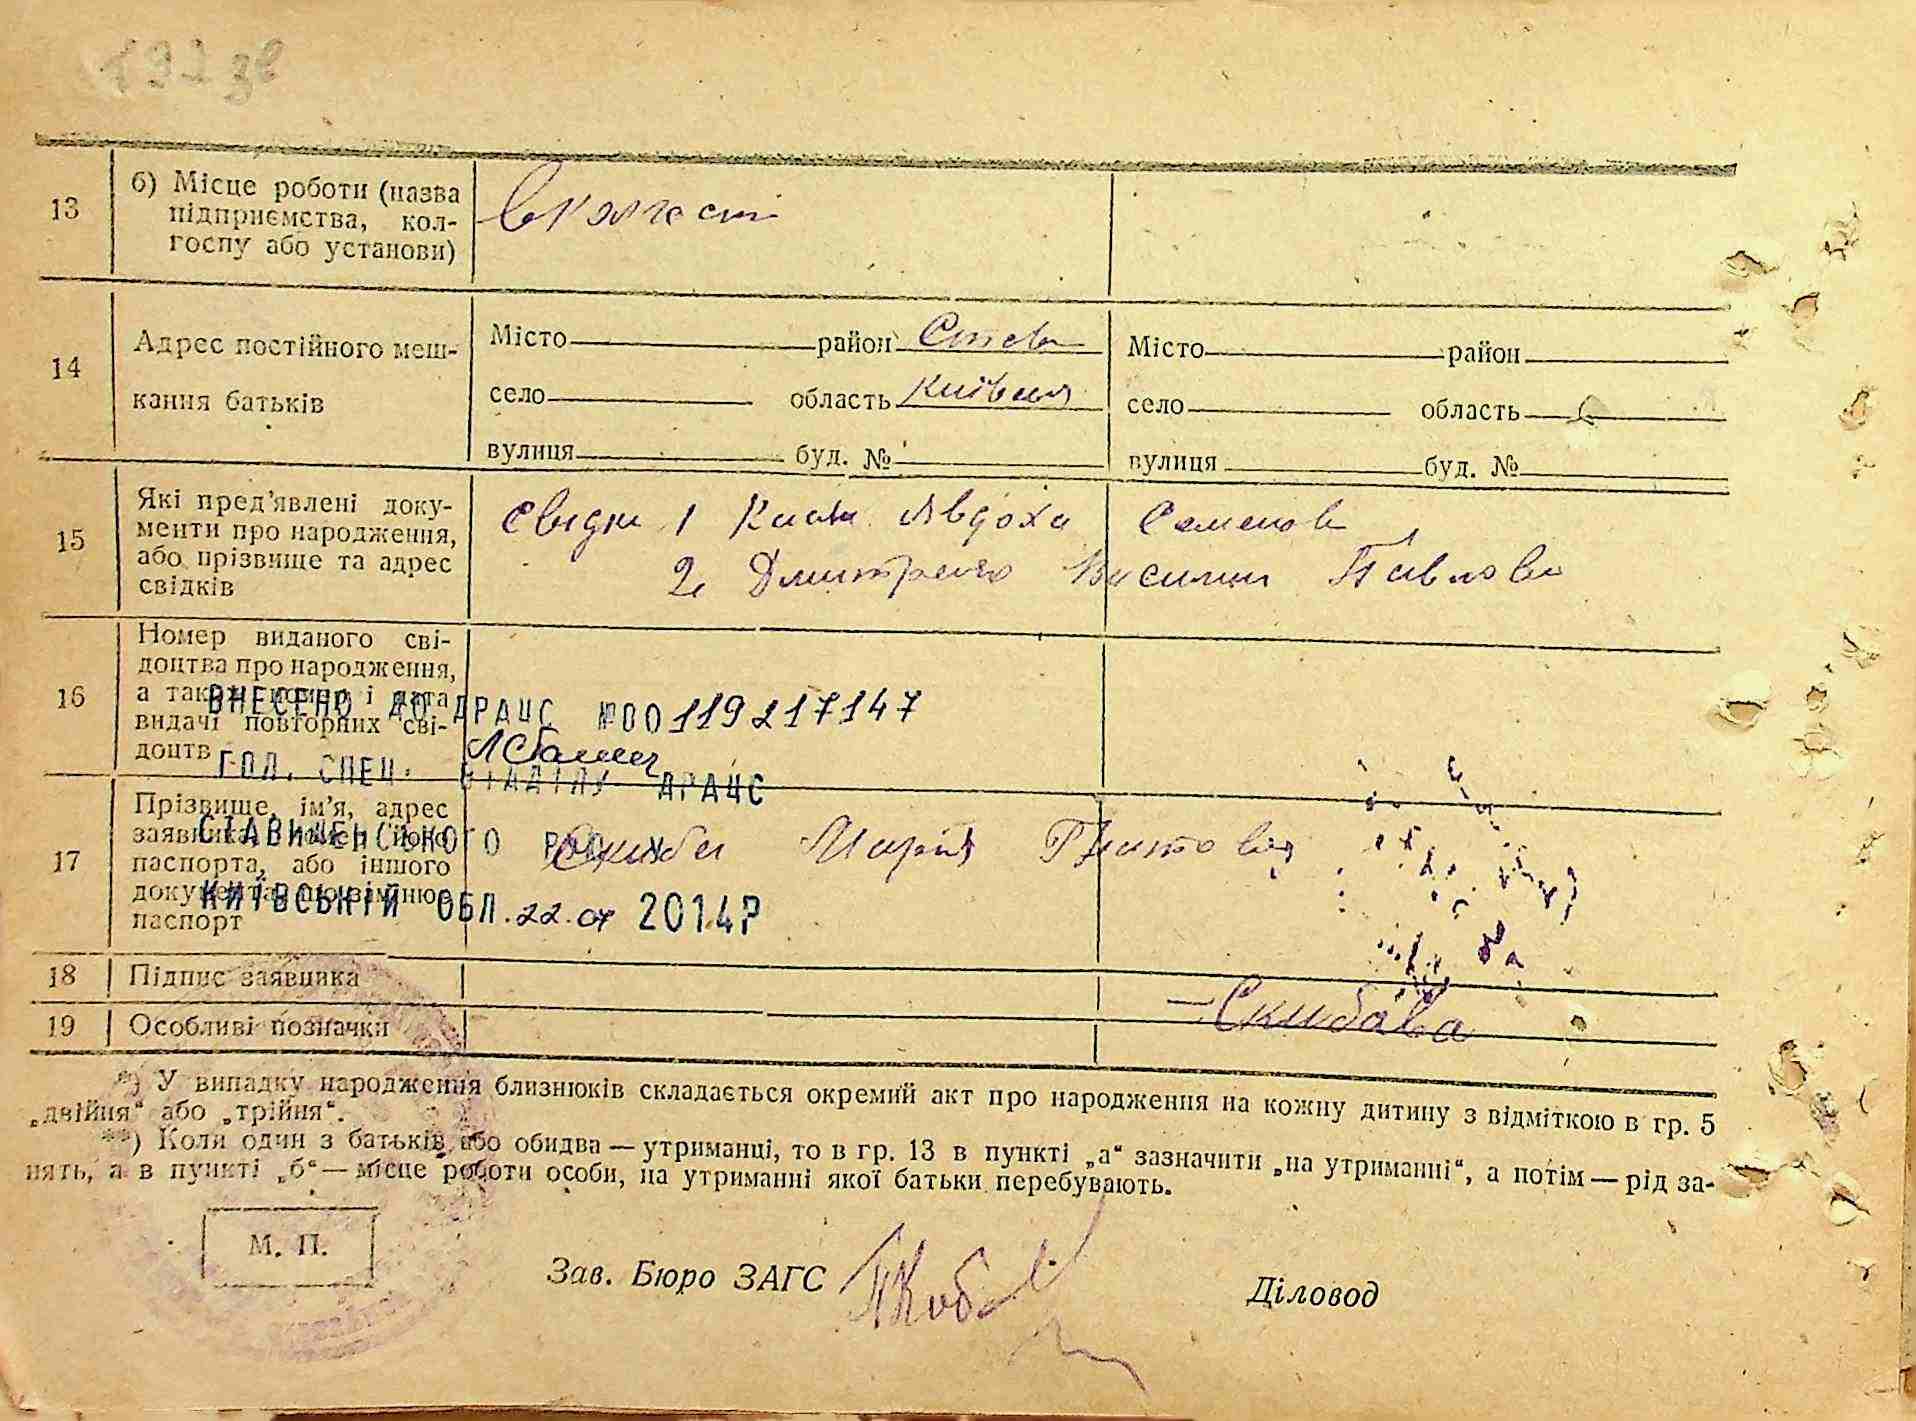 13 б) Місце роботи (назва
підприємства, кол-
госпу або установи)
14 Адрес постійного меш-
кання батьків
Місто район Став
село область Київськ
вулиця буд. №
Місто район
село область
вулиця буд. №
15 Які пред'явлені доку-
менти про народження,
або прізвище та адрес
свідків
свідки 1 Авдоха Семенов
2 Дмитренко Василий Павлов
16 Номер виданого сві-
доцтва про народження,
а також номер і дата
видачі повторних сві-
доцтв
ВНЕСЕНО ДО ДРАЦС №00119217147
ГОЛ. СПЕЦ. ВІДДІЛУ ДРАЦС
СТАВИЩЕНСЬКОГО РУЮ У
КИЇВСЬКІЙ ОБЛ. 22.07 2014Р
17 Прізвище, ім'я, адрес
заявника,
паспорта, або іншого
документа, що замінює
паспорт
Скиба Мария
18 Підпис заявника
Скибава
19 Особливі позначки
*) У випадку народження близнюків складається окремий акт про народження на кожну дитину з відміткою в гр. 5
„двійня“ або „трійня“.
**) Коли один з батьків або обидва — утриманці, то в гр. 13 в пункті „а“ зазначити „на утриманні“, а потім — рід за-
нять, а в пункті „б“ — місце роботи особи, на утриманні якої батьки перебувають.
М. П.
Зав. Бюро ЗАГС
Діловод